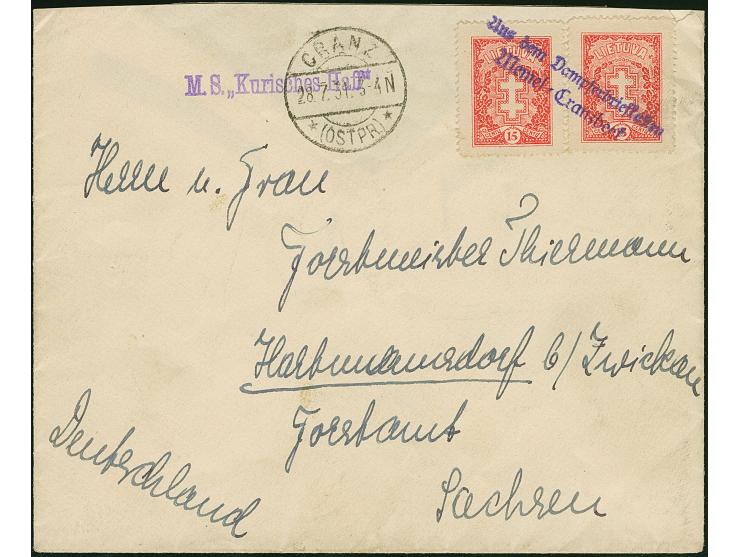 M.S. „Kurisches Haff“
CRANZ
28.7.31. 3-4 N
* (OSTPR) *
LIETUVA
15
LIETUVA
Aus dem Dampferbriefkasten
Memel-Cranzbeek
Herrn u. Frau
Forstmeister Thiermann
Hartmannsdorf b/ Zwickau
Forstamt
Sachsen
Deutschland